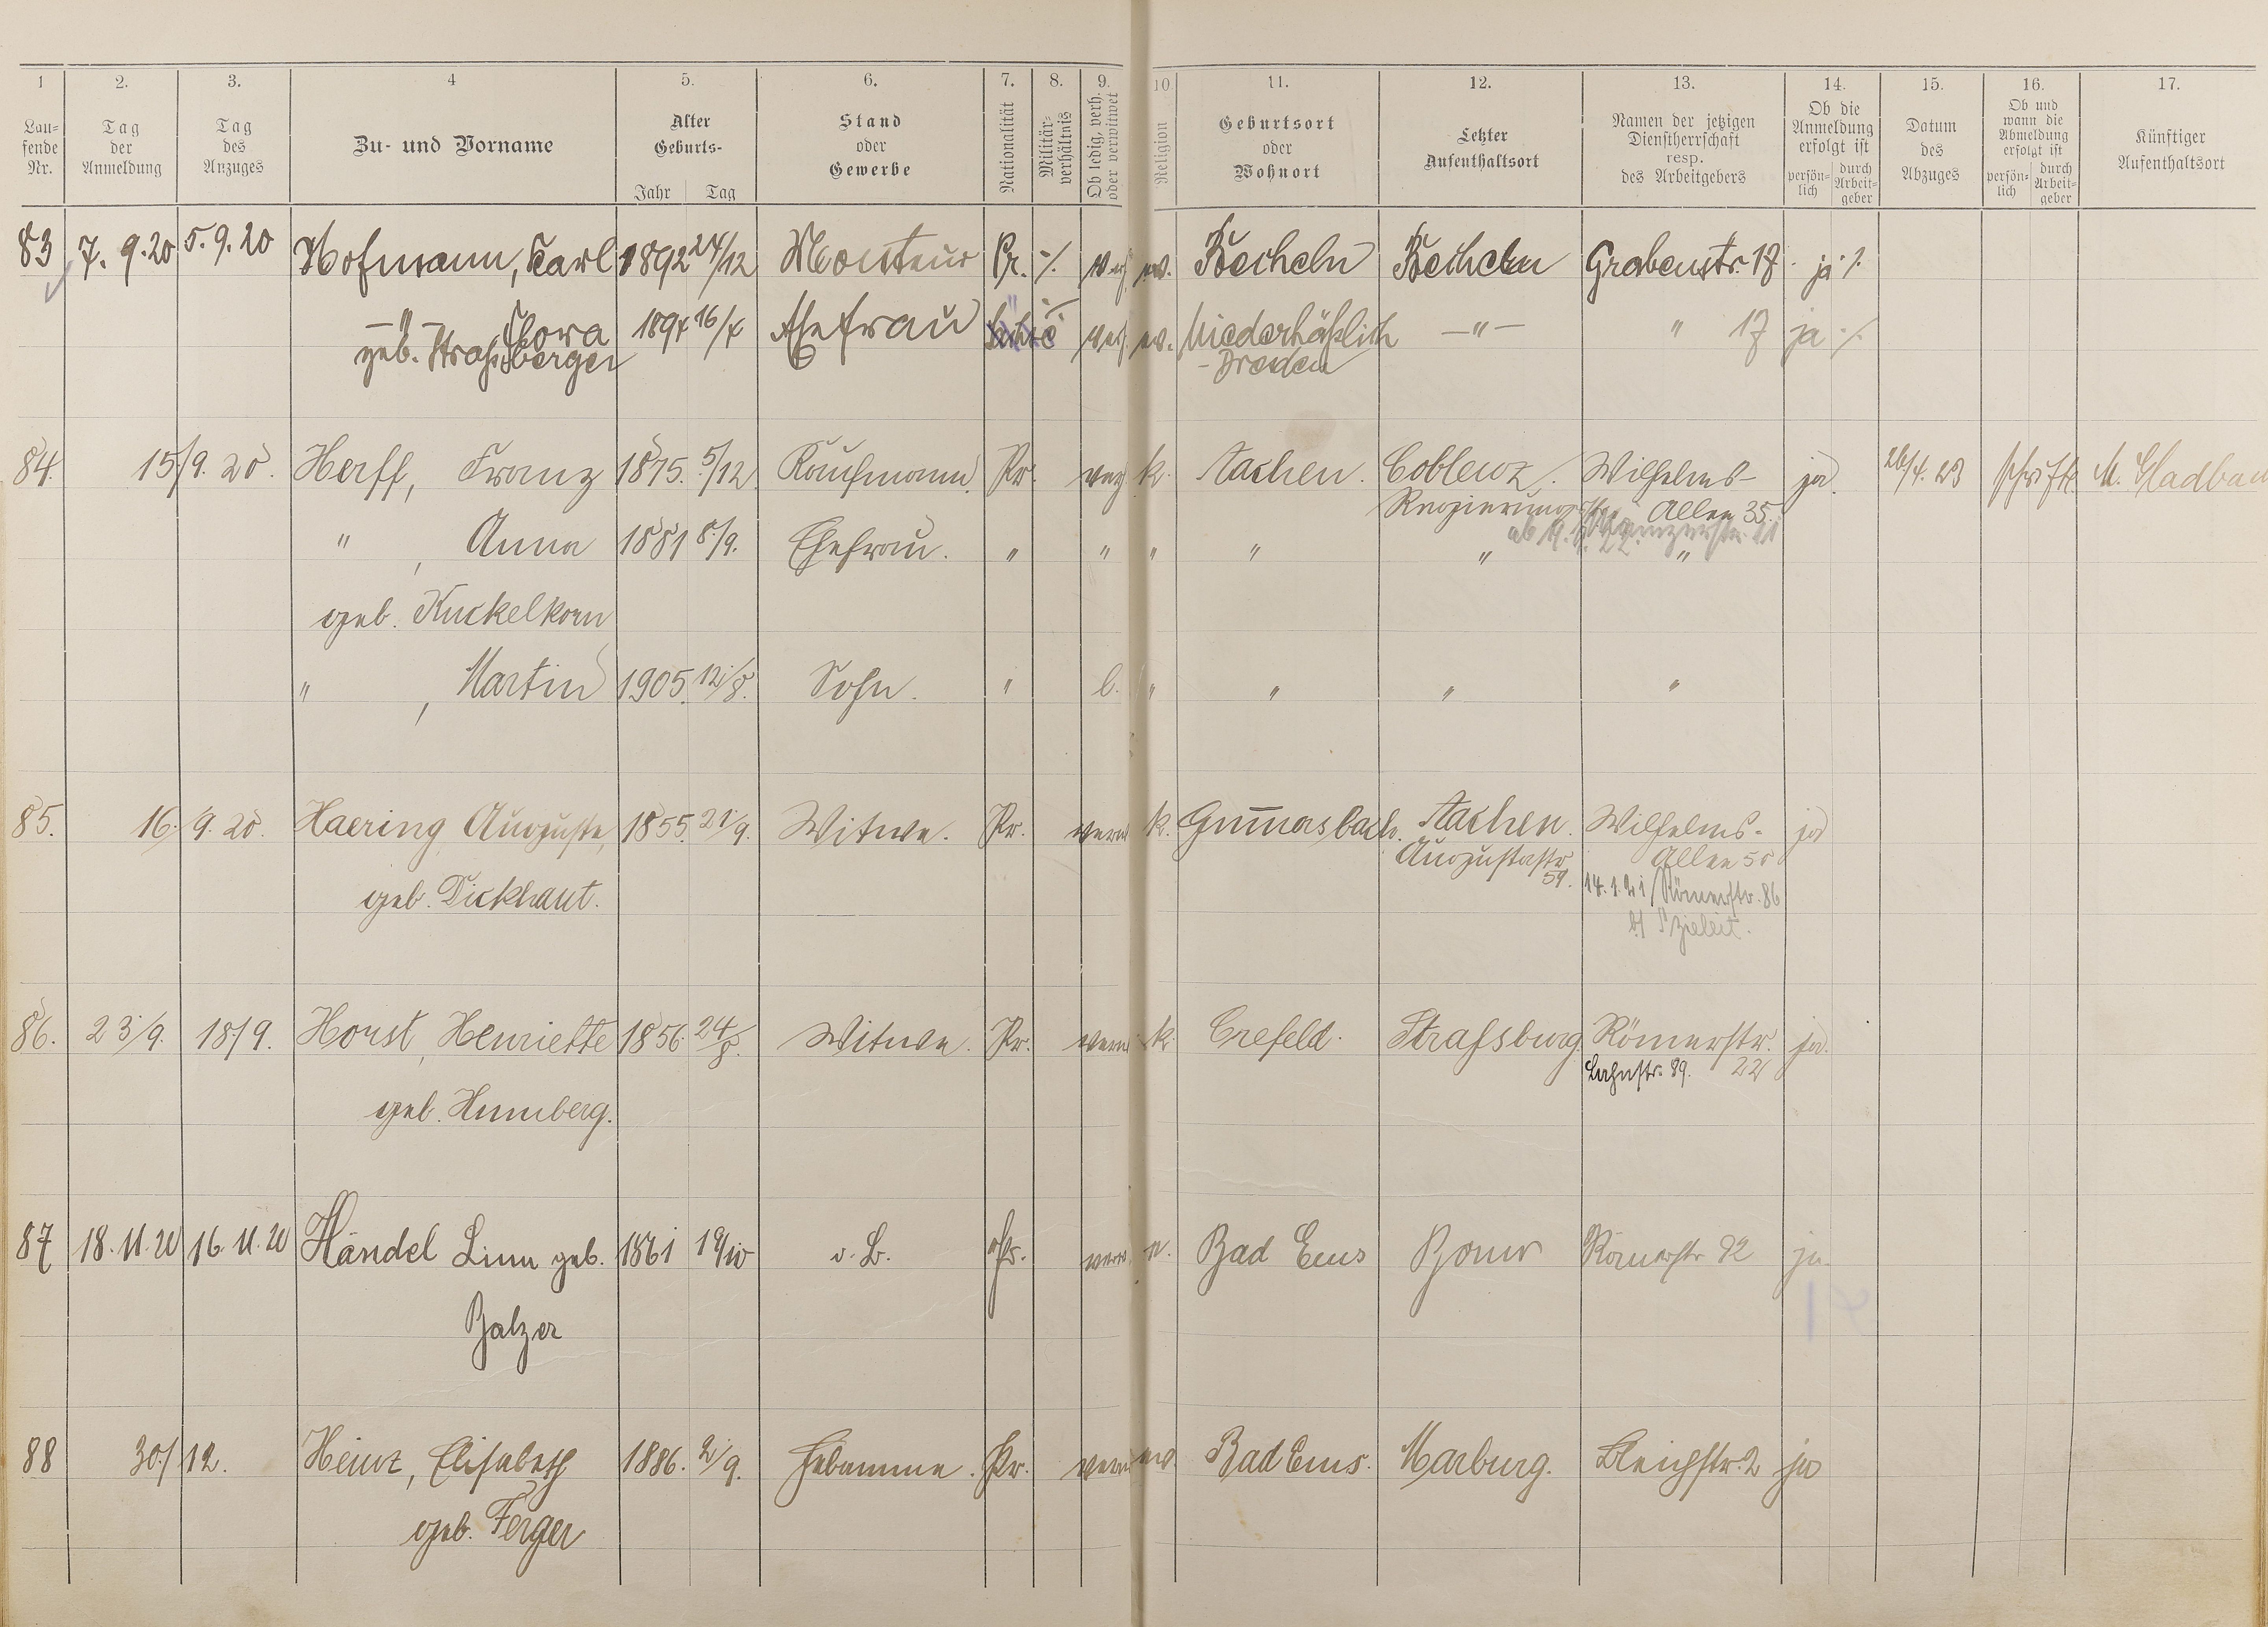 1 2. 3. 4 5. 6. 7. 8. 9. 10. 11. 12. 13. 14. 15. 16. 17.
Lau=
fende
Nr.
Tag
der
Anmeldung
Tag
des
Anzuges
Zu- und Vorname
Alter
Geburts-
Jahr Tag
Stand
oder
Gewerbe
Nationalität
Militär-
verhältnis
Ob ledig, verh.
oder verwitwet
Religion
Geburtsort
oder
Wohnort
Letzter
Aufenthaltsort
Namen der jetzigen
Dienstherrschaft
resp.
des Arbeitgebers
Ob die
Anmeldung
erfolgt ist
persön-
lich
durch
Arbeit-
geber
Datum
des
Abzuges
Ob und
wann die
Abmeldung
erfolgt ist
persön-
lich
durch
Arbeit-
geber
Künftiger
Aufenthaltsort
83 7. 9.20 5.9.20 Hofmann, Karl 1892 24/12 Monteur Pr. ·/. ev. Becheln Becheln Grabenstr. 17 ja ·/.
–"– Flora 1894 16/4 Ehefrau ev. Niederhäßlich –"– " 17 ja ·/.
geb. Straßberger -Dresden
84. 15./9. 20. Herff, Franz 1875. 5/12 Kaufmann. Pr. k. Aachen. Coblenz. Wilhelms- ja. 26/4. 23 schriftl. M. Gladbach
Allee 35.
" , Anna 1881 8./9. Ehefrau. " " " " " "
geb. Kuckelkorn
" , Martin 1905. 12/8. Sohn. " l. " " " "
85. 16./9. 20. Haering Auguste, 1855. 21/9. Witwe. Pr. verw k. Gum̅ersbach. Aachen. Wilhelms- ja
Augustastr. Allee 50
59. 14.1.21 Römerstr. 86
geb. Dickhaut.
86. 23/9. 18./9. Horst, Henriette 1856. 24/8. Witwe. Pr. verw k. Crefeld. Strafsburg. Römerstr. ja.
Lahnstr. 89. 22
geb. Humberg.
87 18.11.20 16.11.20 Händel Lina geb. 1861 19/10 o. B. Pr. verw. e. Bad Ems Bonn Römerstr. 92 ja.
Balzer
88 30./12. Heinz, Elisabeth 1886. 2/9. Hebamme. Pr. verw ev Bad Ems. Marburg. Bleichstr. 2 ja
geb. Ferger